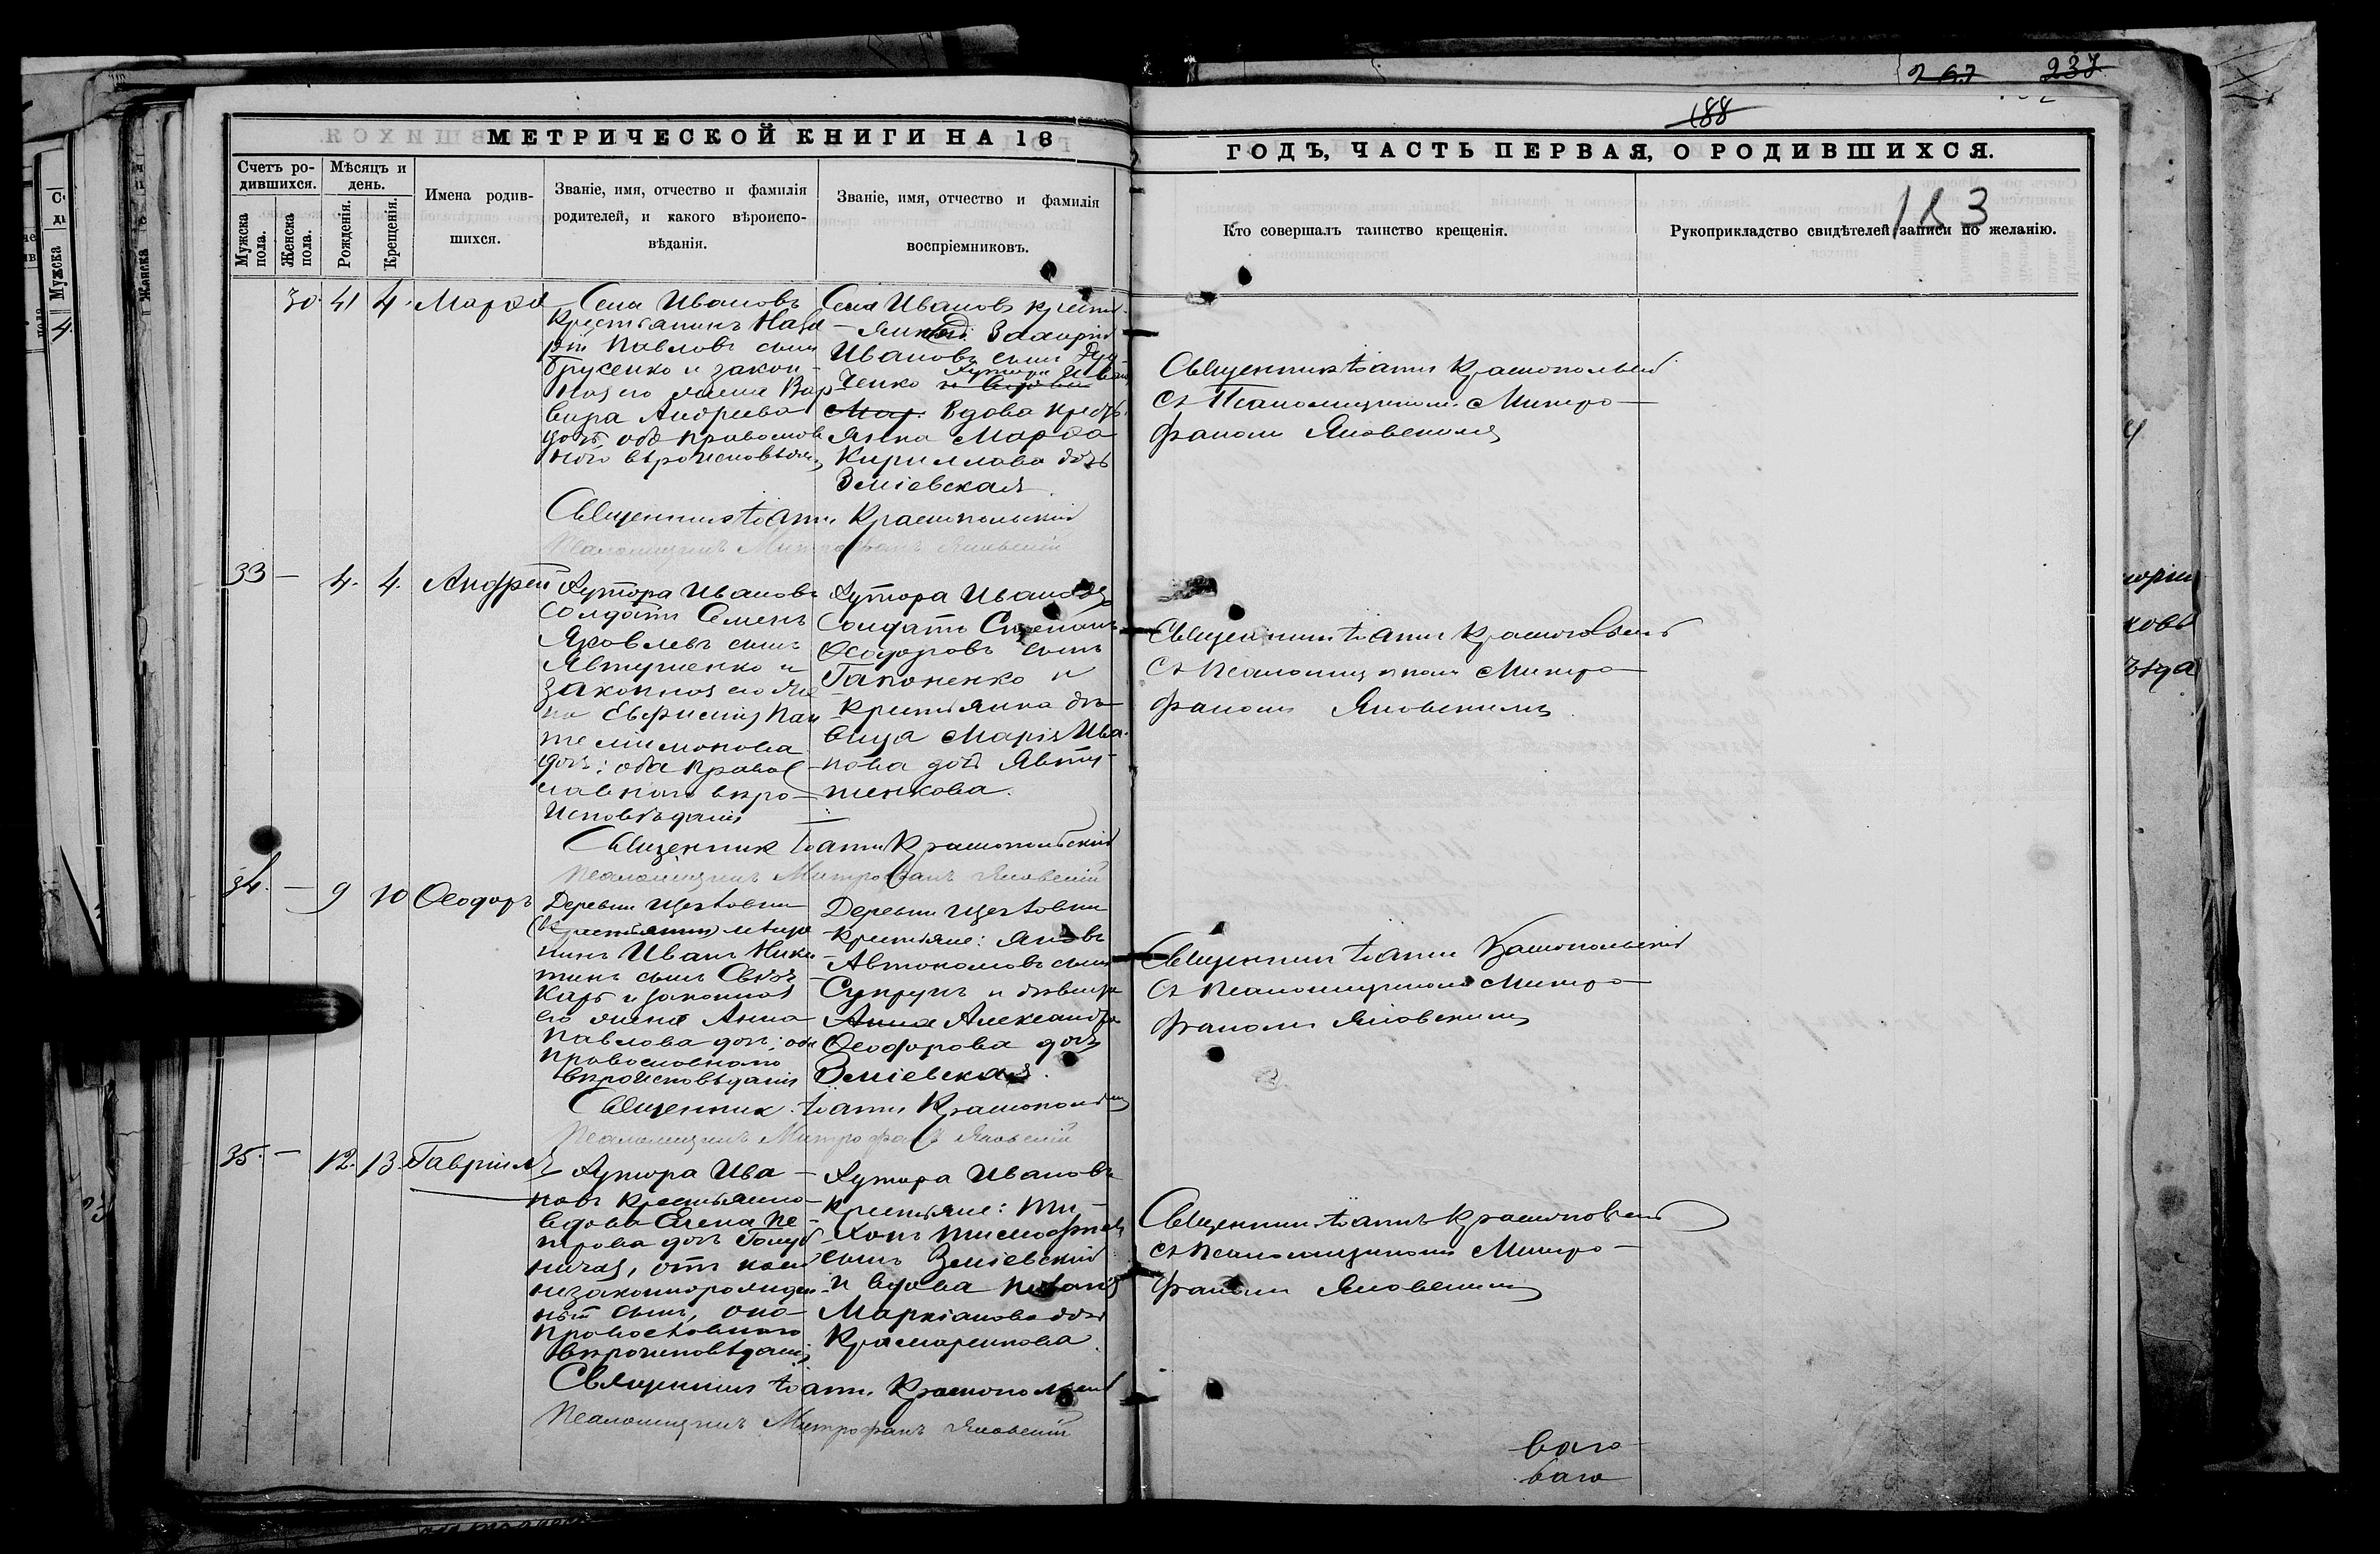 237
188
МЕТРИЧЕСКОЙ КНИГИ НА 18
ГОДЪ, ЧАСТЬ ПЕРВАЯ, О РОДИВШИХСЯ.
Счетъ ро-
дившихся.
Мужска
пола.
Женска
пола.
Мѣсяцъ и
день.
Рожденія.
Крещенія.
Имена родив-
шихся.
Званіе, имя, отчество и фамилія
родителей, и какого вѣроиспо-
вѣданія.
Званіе, имя, отчество и фамилія
воспріемниковъ.
Кто совершалъ таинство крещенія.
Рукоприкладство свидѣтелей записи по желанію.
183
30 4. Марѳа
Села Ивановъ
Крестьянинъ
Павловъ сынъ
и закон-
ная его жена Вар-
вара Андреева
дочь, оба православ
наго вѣроисповѣдан.
Села Ивановъ крестья-
Ивановъ сынъ
ченко
Вдова крестъ
янка Марѳа
Кириллова дочь
Зміевская
Священникъ Іоаннъ Краснопольскій
Псаломщикъ Митрофанъ Яновскій
Священникъ Іоаннъ Краснопольскій
съ Псаломщикомъ Митро-
фаномъ Яновскимъ
33 — 4. 4. Андрей
Хутора Ивановъ
Солдатъ Семенъ
Яковлевъ сынъ
Явтушенко и
законная его же
на Евфимія Пан
телимонова
доч: оба правос
лавнаго вѣро-
исповѣданія
Хутора Ивановъ
Солдатъ Степанъ
Ѳеодоровъ сынъ
Гапоненко и
крестьянка дѣ-
вица Марія Ива-
нова доч Явту-
шенкова.
Священникъ Іоаннъ Краснопольскій
Псаломщикъ Митрофанъ Яновскій
Священникъ Іоаннъ Краснопольскій
съ Псаломщикомъ Митро-
фаномъ Яновскимъ
34. — 9 10 Ѳеодоръ
Деревни
Иванъ Ники
тинъ сынъ
и законная
его жена Анна
Павлова доч; оба
православнаго
вѣроисповѣданія
Деревни
крестьяне: Яковъ
Автономовъ сынъ
Супрунъ и дѣвица
Анна Александра
Ѳеодорова дочь
Зміевская.
Священникъ Іоаннъ Краснопольскій
Псаломщикъ Митрофанъ Яновскій
Священникъ Іоаннъ Краснопольскій
съ Псаломщикомъ Митро-
фаномъ Яновскимъ
35. — 12. 13. Гавріилъ
Хутора Ива-
новъ крестьянка
вдова Елена Пе-
трова дочь
незаконнорожден
ный сынъ, она
православнаго
вѣроисповѣданія
Хутора Ивановъ
крестьяне: Ти-
хонъ Тимофеевъ
сынъ Зміевскій
и вдова
Маркіанова доч
Крамаренкова
Священникъ Іоаннъ Краснопольскій
Псаломщикъ Митрофанъ Яновскій
Священникъ Іоаннъ Краснопольскій
съ Псаломщикомъ Митро-
фаномъ Яновскимъ